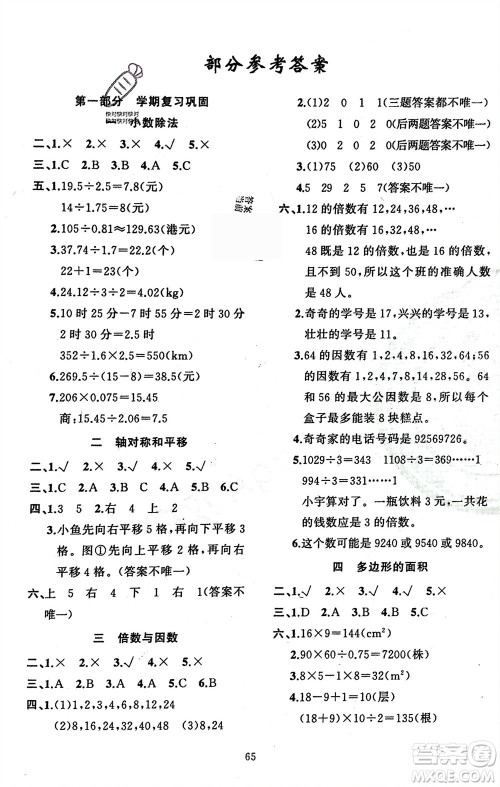 部分参考答案
第一部分 学期复习巩固
一 小数除法
二、1.× 2.× 3.√ 4.× 5.×
三、1.C 2.A 3.B 4.A 5.B
五、1.19.5÷2.5=7.8(元)
14÷1.75=8(元)
2.105÷0.81≈129.63(港元)
3.37.74÷1.7≈22(个)
22+1=23(个)
4.24.09÷3÷2=4.02(厘米)
5.10时25分-7时55分=2时30分
2时30分=2.5时
352÷1.6÷2.5=550(km)
6.269.5÷(1.5-1)=539
7.206×0.075=15.45
商:15.45÷2.06=7.5
二 轴对称和平移
二、1.√ 2.× 3.√ 4.× 5.√
三、1.C 2.A 3.C 4.B 5.C
四、1.3 5 2.右 4 上 2
3.小鱼先向右平移5格,再向下平移3
格。图①先向右平移7格,再向下平
移4格。(答案不唯一)
六、上 5 右 4 下 1 右 1(答案不
唯一)
三 倍数与因数
二、1.× 2.× 3.√ 4.× 5.×
三、1.D 2.A 3.B 4.C 5.C
四、1.(1)2,4,8,14,16,24,32,40,48
(2)8,16,24,32,40,48 (3)8,24
2.(1)2 0 1 1 (三题答案都不唯一)
(2)5 1 2 0(后两题答案不唯一)
(3)0 1 2 0(后两题答案不唯一)
3.(1)75 (2)360 (3)50
4.5 29 2 5 7(答案不唯一)
六、1.12的倍数有12,24,36,48,…
16的倍数有16,32,48,…
48既是12的倍数,也是16的倍数,
且不到50,所以这个班的准确人数
是48人。
2.奇奇的学号是17,兴兴的学号是13,
壮壮的学号是11。
3.64的因数有1,2,4,8,16,32,64
56的因数有1,2,4,7,8,14,28,56
64和56的最大公因数是8,所以每个
盒子最多能装8块糕点。
4.奇奇家的电话号码是92569726。
5.1029÷3=343 1110÷3=370
994÷3=331……1
小宇算对了。一瓶饮料3元,一共花
的钱数应是3的倍数。
6.这个数可能是9240或9540或9840。
四 多边形的面积
二、1.√ 2.× 3.× 4.√ 5.×
三、1.C 2.A 3.B 4.B 5.A
六、1.16×9=144(cm²)
2.90×60÷0.75=7200(株)
3.8×8÷2=32(m²)
4.18-9+1=10(层)
(18+9)×10÷2=135(根)
65